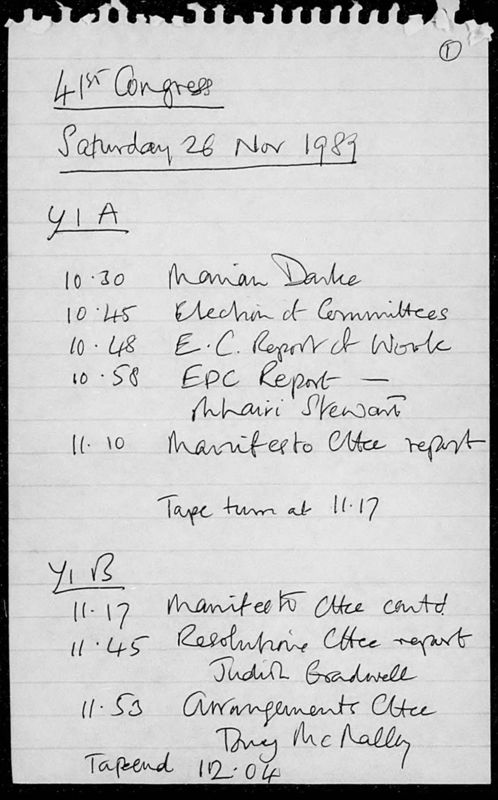 1
41st Congress
Saturday 26 Nov 1989
Y1 A
10.30 Marian Darke
10.45 Election of Committees
10.48 E.C. Report of Work
10.58 EPC Report —
Mhairi Stewart
11.10 Manifesto Cttee report
Tape turn at 11.17
Y1 B
11.17 Manifesto Cttee contd
11.45 Resolutions Cttee report
Judith Bradwell
11.53 Arrangements Cttee
McNally
Tape end 12.04